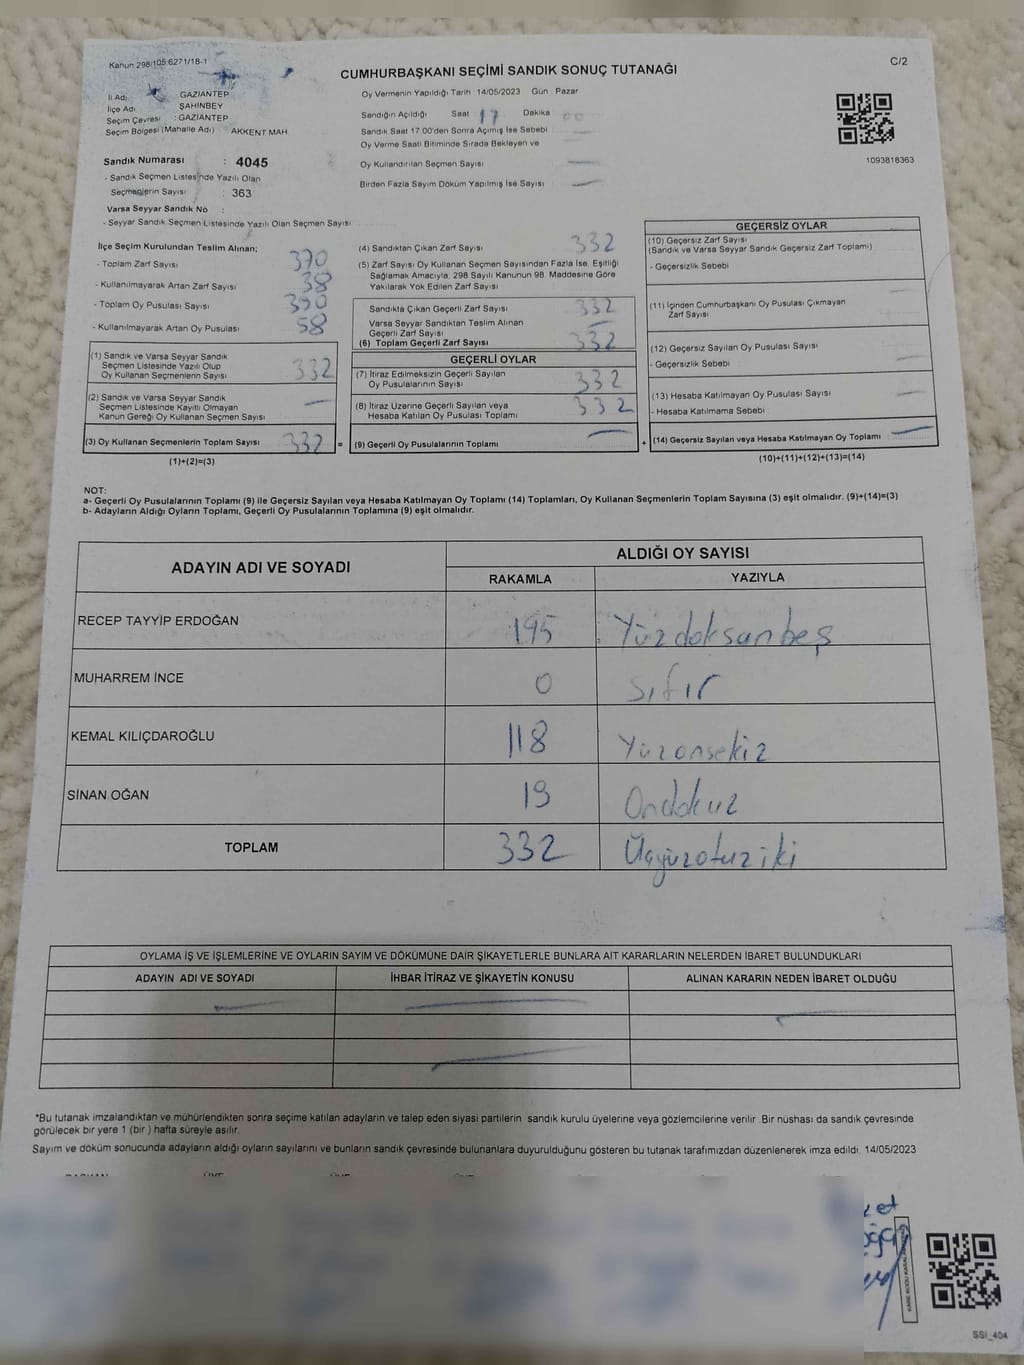 Kanun 298/105 6271/18-1
CUMHURBAŞKANI SEÇİMİ SANDIK SONUÇ TUTANAĞI
C/2
İl Adı : GAZİANTEP
İlçe Adı : ŞAHİNBEY
Seçim Çevresi : GAZİANTEP
Seçim Bölgesi (Mahalle Adı) : AKKENT MAH.
Sandık Numarası : 4045
- Sandık Seçmen Listesinde Yazılı Olan
Seçmenlerin Sayısı : 363
Varsa Seyyar Sandık No :
- Seyyar Sandık Seçmen Listesinde Yazılı Olan Seçmen Sayısı
Oy Vermenin Yapıldığı Tarih 14/05/2023 Gün Pazar
Sandığın Açıldığı Saat 17 Dakika
Sandık Saat 17.00'den Sonra Açımış İse Sebebi
Oy Verme Saati Bitiminde Sırada Bekleyen ve
Oy Kullandırılan Seçmen Sayısı
Birden Fazla Sayım Döküm Yapılmış İse Sayısı
1093818363
İlçe Seçim Kurulundan Teslim Alınan;
- Toplam Zarf Sayısı 370
- Kullanılmayarak Artan Zarf Sayısı 38
- Toplam Oy Pusulası Sayısı 390
- Kullanılmayarak Artan Oy Pusulası 58
(1) Sandık ve Varsa Seyyar Sandık
Seçmen Listesinde Yazılı Olup
Oy Kullanan Seçmenlerin Sayısı 332
(2) Sandık ve Varsa Seyyar Sandık
Seçmen Listesinde Kayıtlı Olmayan
Kanun Gereği Oy Kullanan Seçmen Sayısı
(3) Oy Kullanan Seçmenlerin Toplam Sayısı 332 =
(1)+(2)=(3)
(4) Sandıktan Çıkan Zarf Sayısı 332
(5) Zarf Sayısı Oy Kullanan Seçmen Sayısından Fazla İse, Eşitliği
Sağlamak Amacıyla, 298 Sayılı Kanunun 98. Maddesine Göre
Yakılarak Yok Edilen Zarf Sayısı
Sandıkta Çıkan Geçerli Zarf Sayısı 332
Varsa Seyyar Sandıktan Teslim Alınan
Geçerli Zarf Sayısı
(6) Toplam Geçerli Zarf Sayısı 332
GEÇERLİ OYLAR
(7) İtiraz Edilmeksizin Geçerli Sayılan
Oy Pusulalarının Sayısı 332
(8) İtiraz Üzerine Geçerli Sayılan veya
Hesaba Katılan Oy Pusulası Toplamı 332
(9) Geçerli Oy Pusulalarının Toplamı +
GEÇERSİZ OYLAR
(10) Geçersiz Zarf Sayısı
(Sandık ve Varsa Seyyar Sandık Geçersiz Zarf Toplamı)
- Geçersizlik Sebebi
(11) İçinden Cumhurbaşkanı Oy Pusulası Çıkmayan
Zarf Sayısı
(12) Geçersiz Sayılan Oy Pusulası Sayısı
- Geçersizlik Sebebi
(13) Hesaba Katılmayan Oy Pusulası Sayısı
- Hesaba Katılmama Sebebi
(14) Geçersiz Sayılan veya Hesaba Katılmayan Oy Toplamı
(10)+(11)+(12)+(13)=(14)
NOT:
a- Geçerli Oy Pusulalarının Toplamı (9) ile Geçersiz Sayılan veya Hesaba Katılmayan Oy Toplamı (14) Toplamları, Oy Kullanan Seçmenlerin Toplam Sayısına (3) eşit olmalıdır. (9)+(14)=(3)
b- Adayların Aldığı Oyların Toplamı, Geçerli Oy Pusulalarının Toplamına (9) eşit olmalıdır.
ADAYIN ADI VE SOYADI
ALDIĞI OY SAYISI
RAKAMLA YAZIYLA
RECEP TAYYİP ERDOĞAN 195 Yüzdoksanbeş
MUHARREM İNCE 0 Sıfır
KEMAL KILIÇDAROĞLU 118 Yüzonsekiz
SİNAN OĞAN 19 Ondokuz
TOPLAM 332 Üçyüzotuziki
OYLAMA İŞ VE İŞLEMLERİNE VE OYLARIN SAYIM VE DÖKÜMÜNE DAİR ŞİKAYETLERLE BUNLARA AİT KARARLARIN NELERDEN İBARET BULUNDUKLARI
ADAYIN ADI VE SOYADI İHBAR İTİRAZ VE ŞİKAYETİN KONUSU ALINAN KARARIN NEDEN İBARET OLDUĞU
*Bu tutanak imzalandıktan ve mühürlendikten sonra seçime katılan adayların ve talep eden siyasi partilerin sandık kurulu üyelerine veya gözlemcilerine verilir. Bir nüshası da sandık çevresinde
görülecek bir yere 1 (bir ) hafta süreyle asılır.
Sayım ve döküm sonucunda adayların aldığı oyların sayılarını ve bunların sandık çevresinde bulunanlara duyurulduğunu gösteren bu tutanak tarafımızdan düzenlenerek imza edildi. 14/05/2023
SSI_404